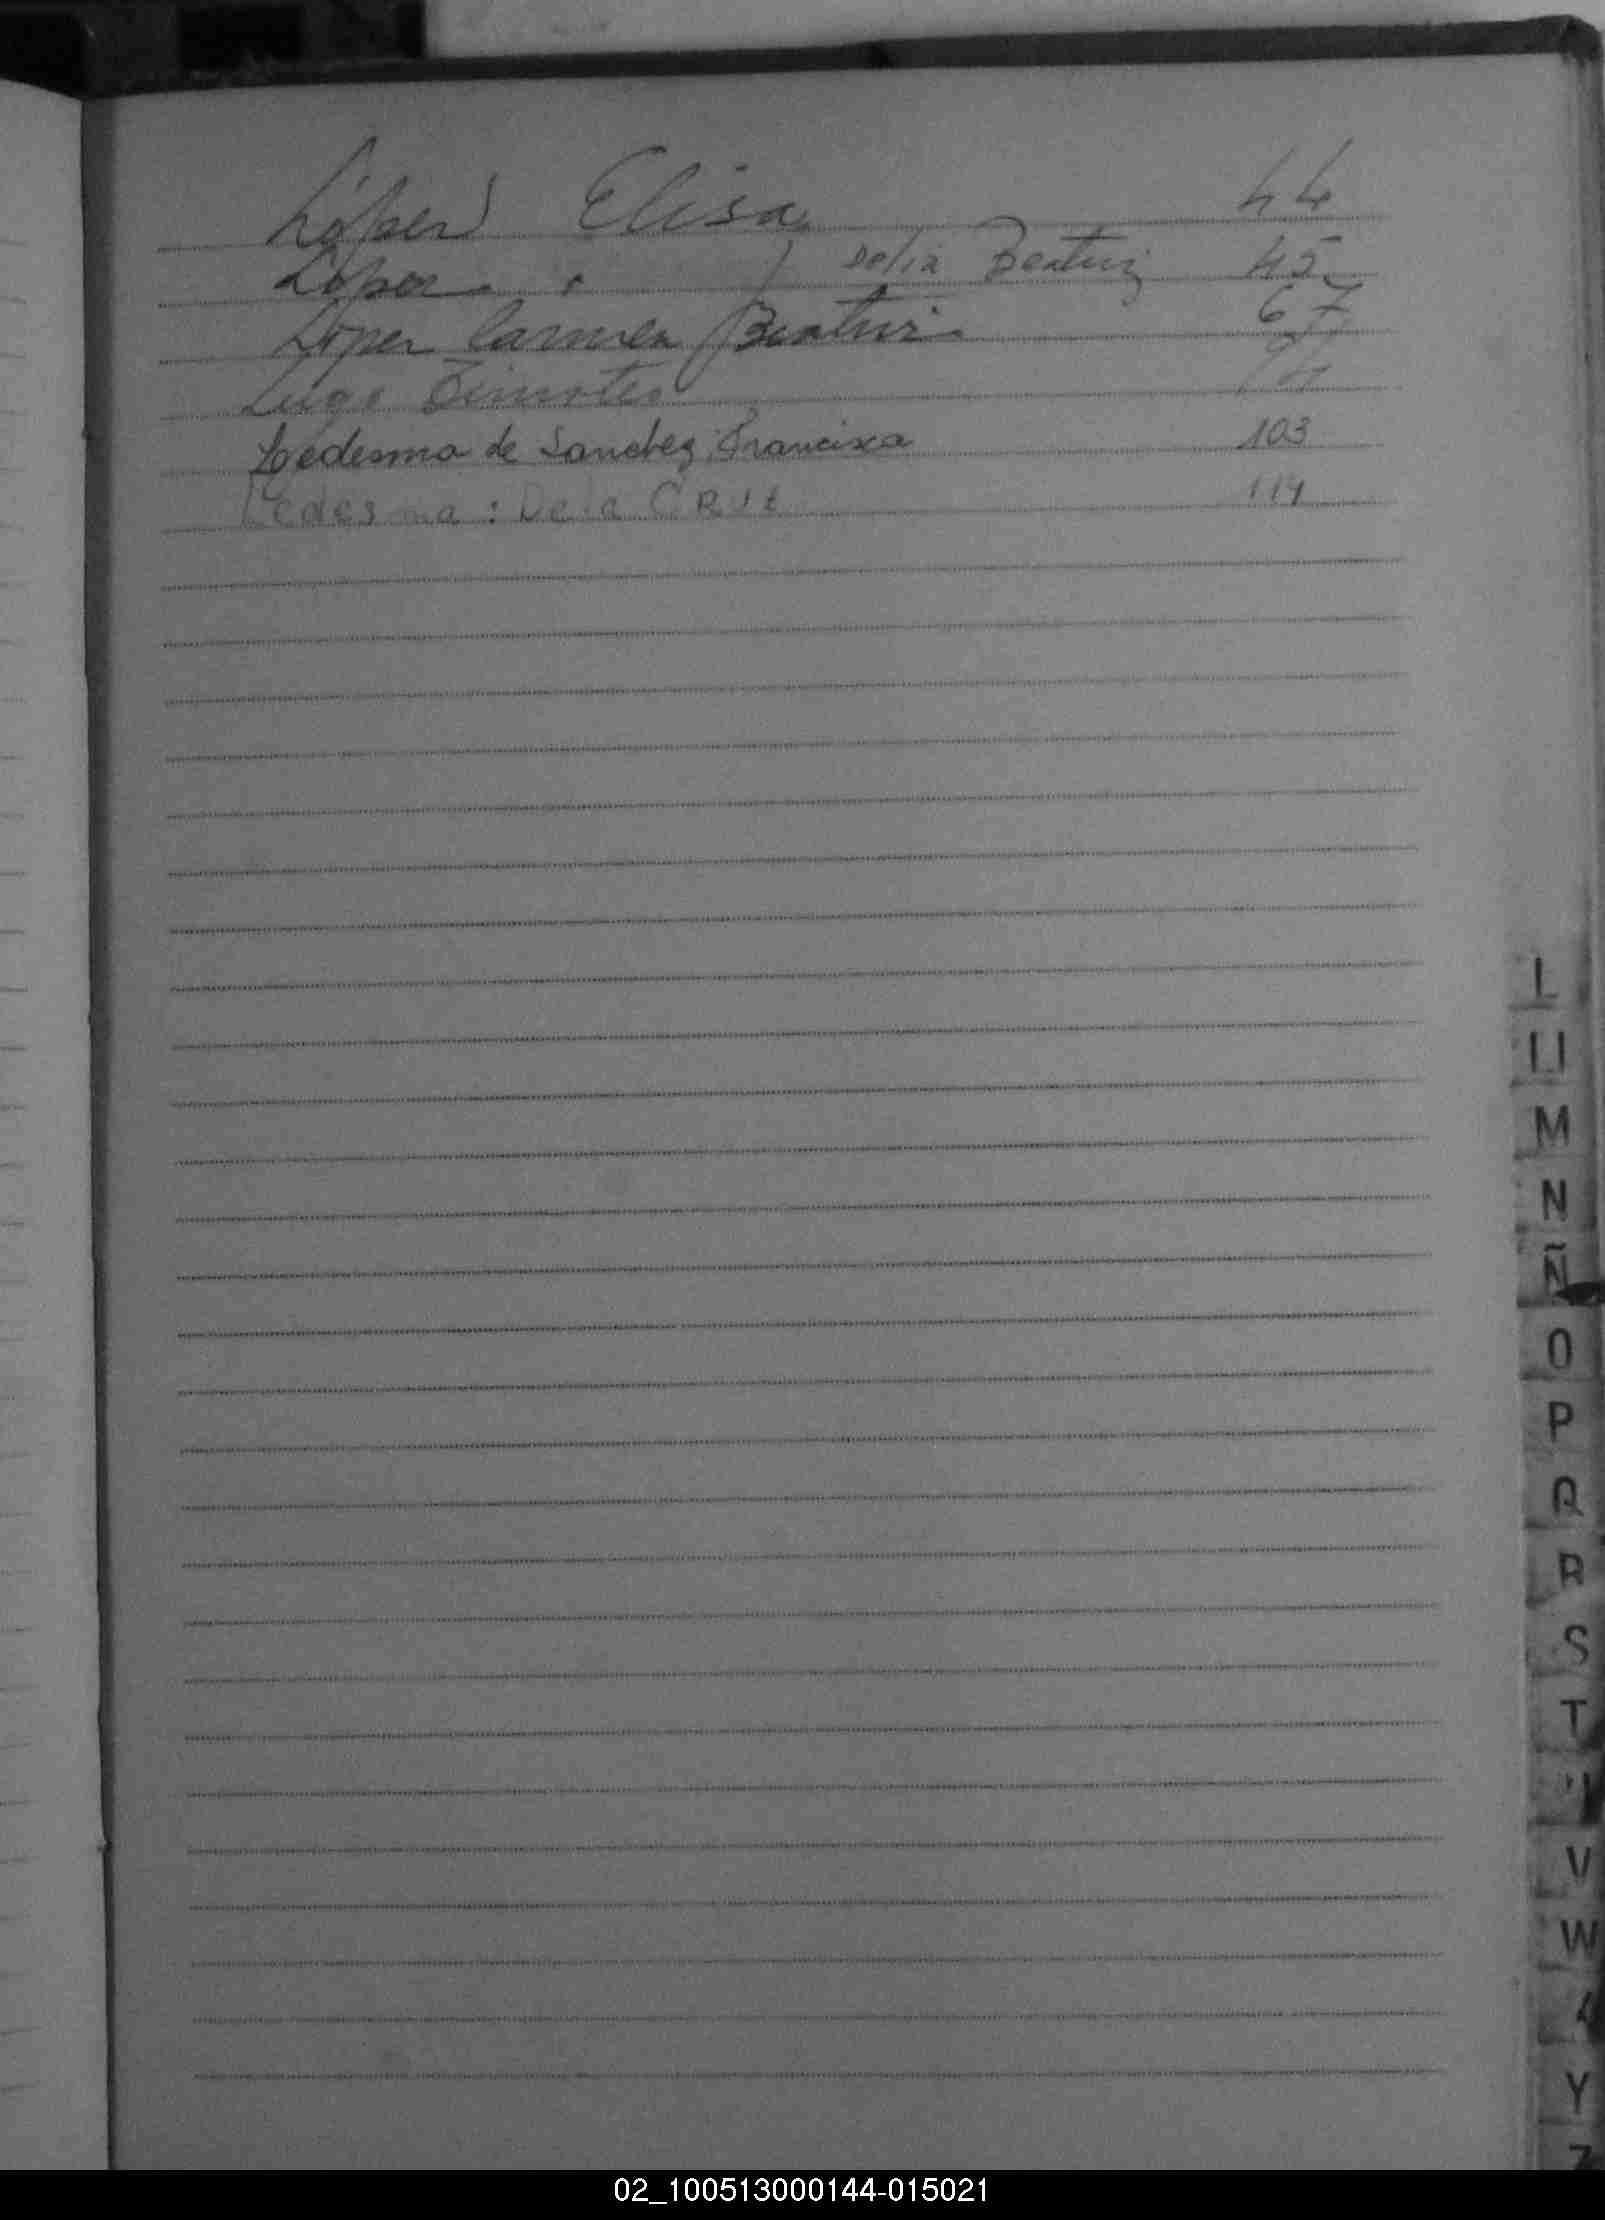 López Elisa 44
López " Delia Beatriz 45
López Carmen Beatriz 67
Lugo Timoteo
Ledesma de Sanchez Francisca 103
Ledesma : De la CRUZ 114
L
Ll
M
N
Ñ
O
P
Q
R
S
T
V
W
Y
Z
02_100513000144-015021